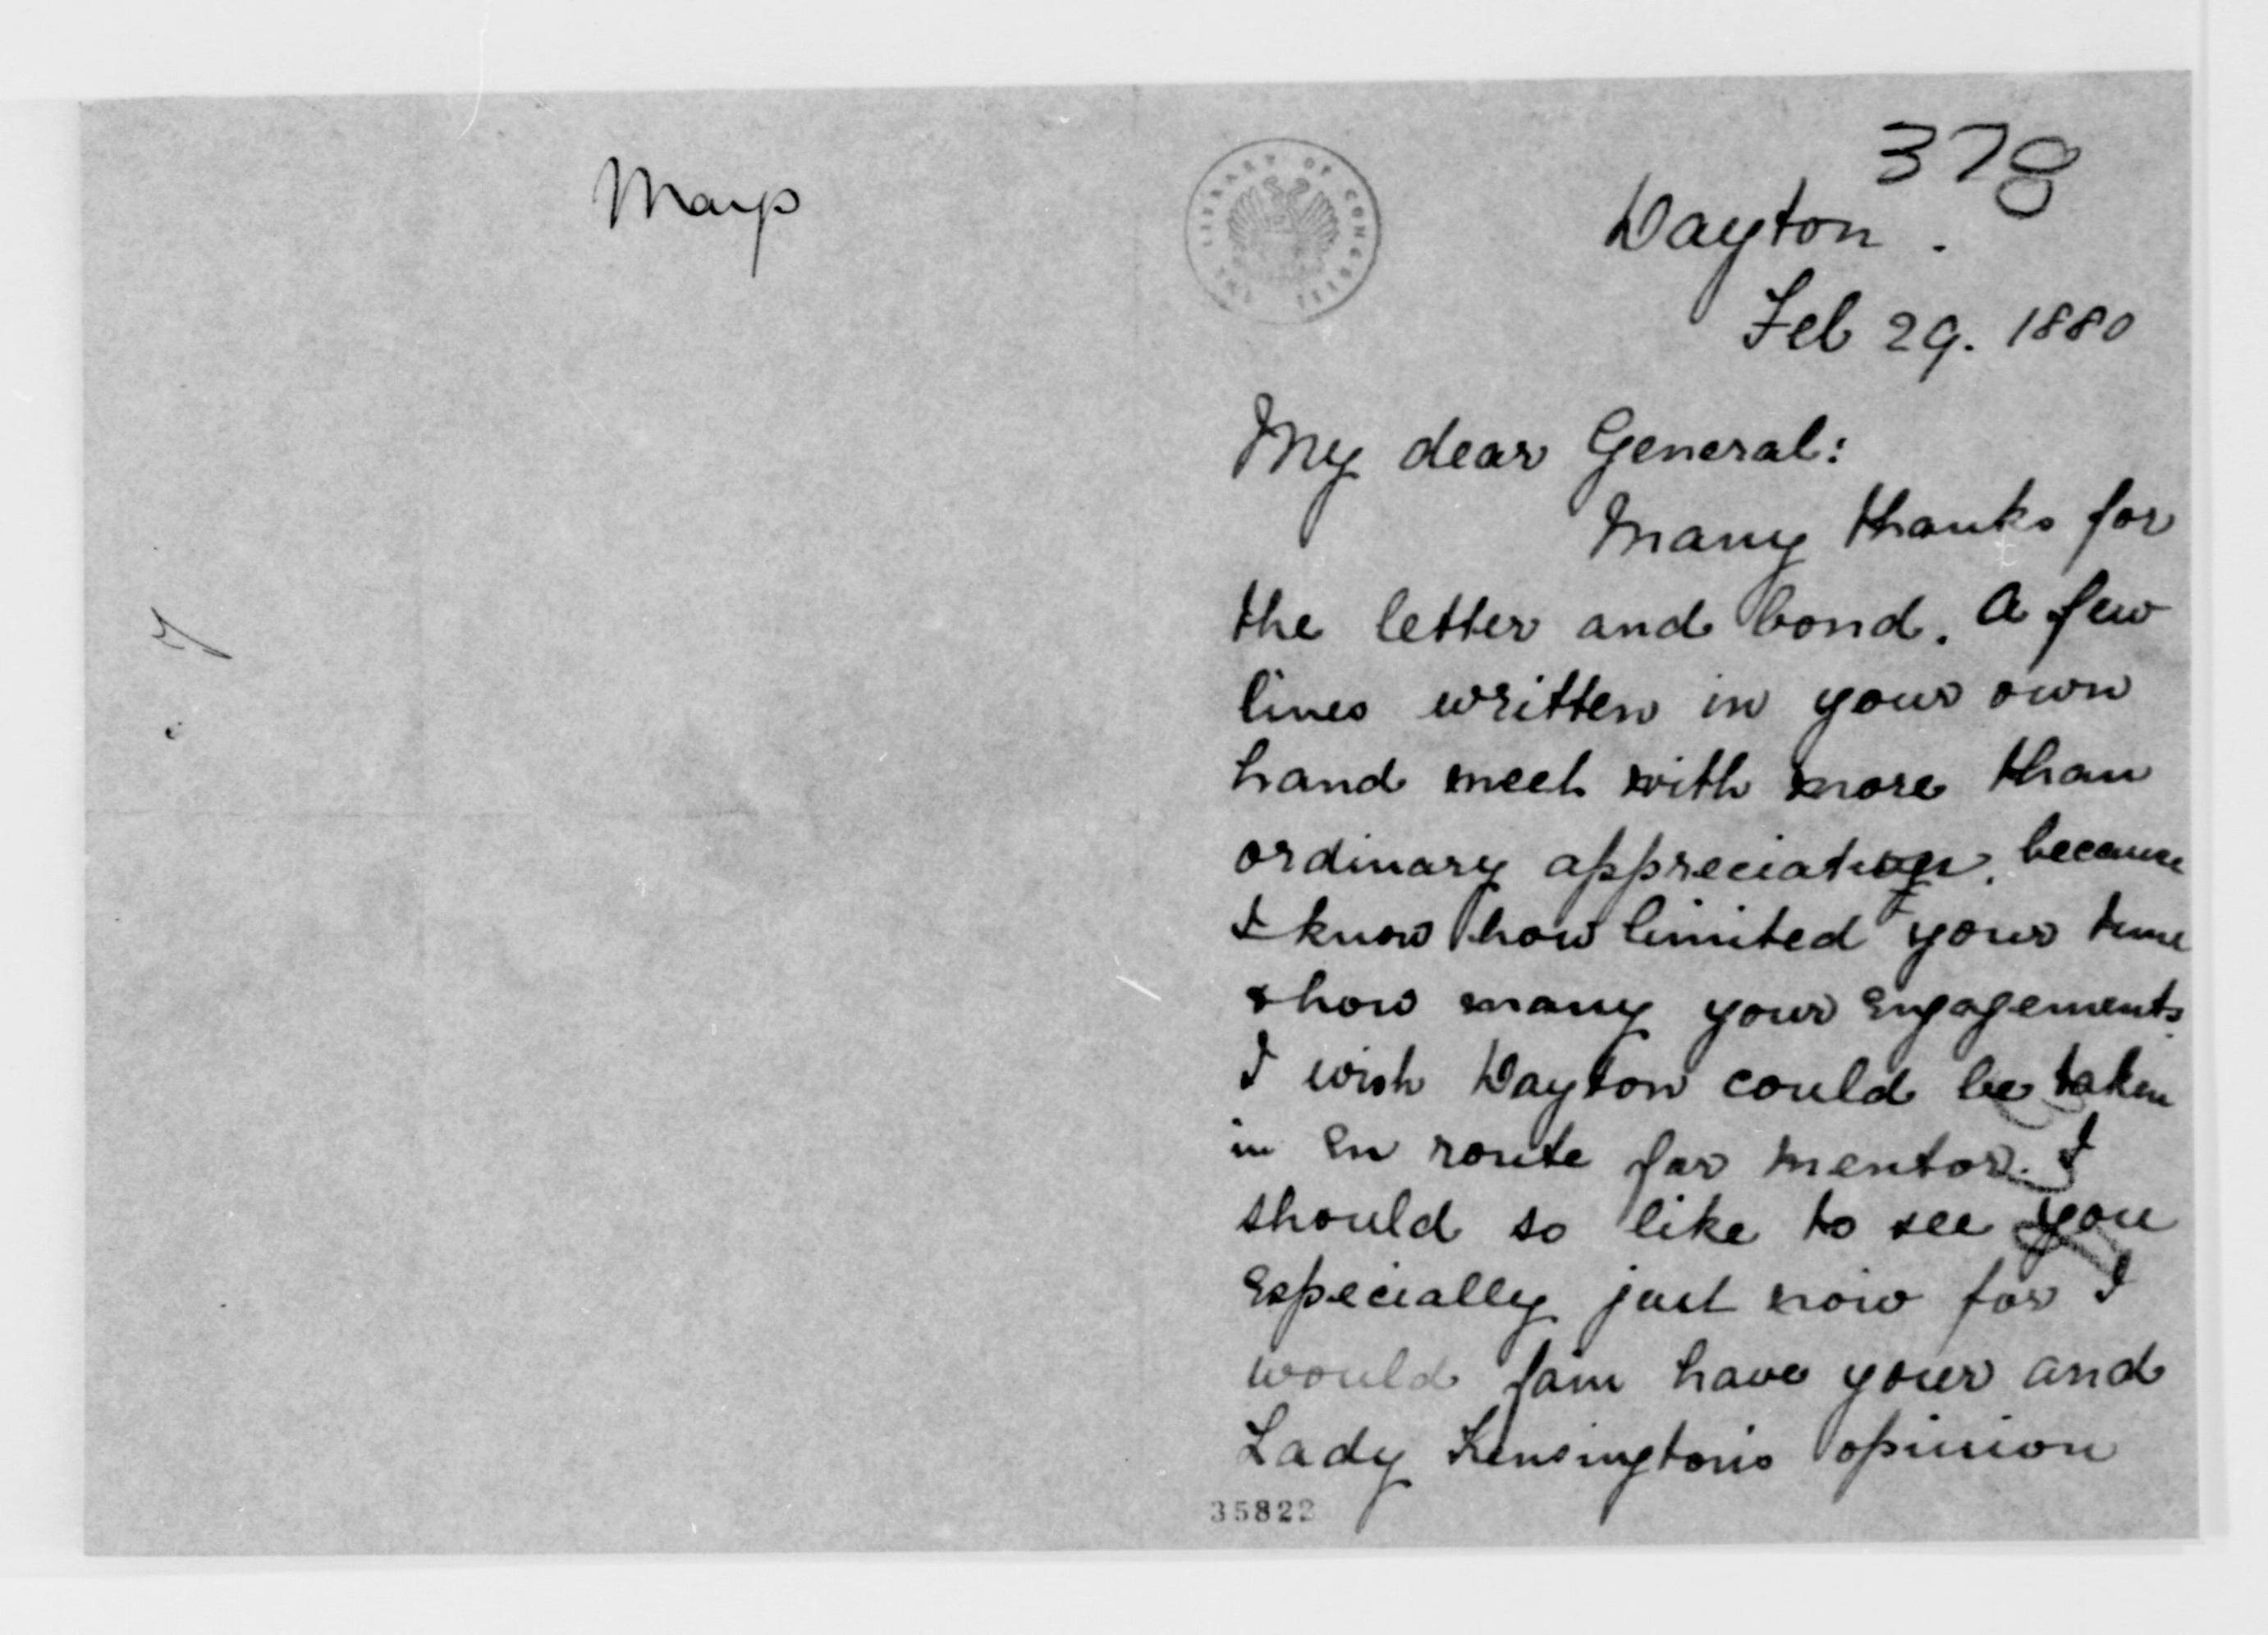 378
Dayton.
Feb 29. 1880
My dear General:
Many thanks for
the letter and bond. A few
lines written in your own
hand meet with more than
ordinary appreciation, because
I know how limited your time
& how many your engagements.
I wish Dayton could be taken
in en route for Mentor. I
should so like to see you
especially just now for I
would fain have your and
Lady Kensington's opinion
35822
THE LIBRARY OF CONGRESS